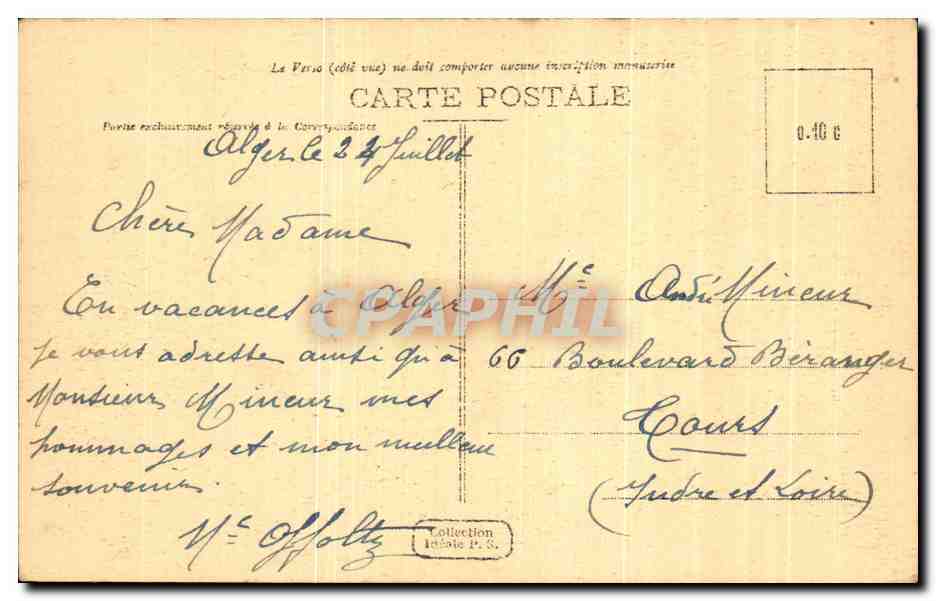 Le Verso (côté vue) ne doit comporter aucune inscription manuscrite
CARTE POSTALE
Partie exclusivement réservée à la Correspondance
0.10 c
Alger le 24 Juillet
Chère Madame
En vacances à Alger
je vous adresse ainsi qu'à
Monsieur Mineur mes
hommages et mon meilleur
souvenir.
Me
Collection
Idéale P. S.
Me André Mineur
66 Boulevard Béranger
Tours
(Indre et Loire)
CPAPHIL